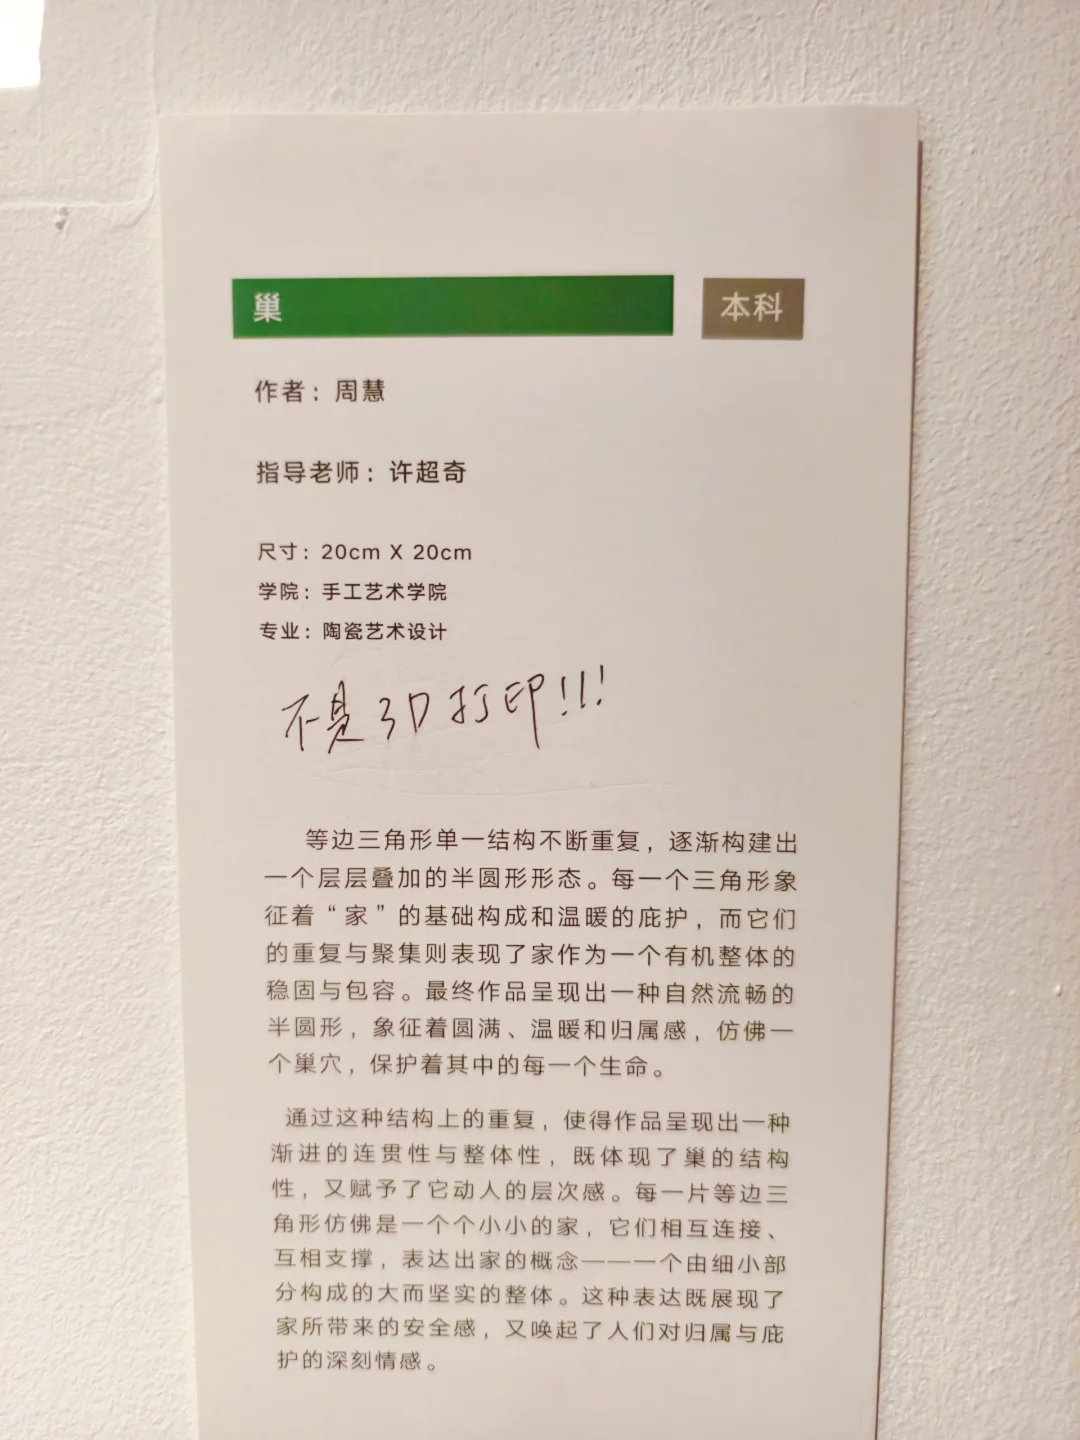 巢
本科
作者：周慧
指导老师：许超奇
尺寸：20cm X 20cm
学院：手工艺术学院
专业：陶瓷艺术设计
不是3D打印!!!
等边三角形单一结构不断重复，逐渐构建出
一个层层叠加的半圆形形态。每一个三角形象
征着“家”的基础构成和温暖的庇护，而它们
的重复与聚集则表现了家作为一个有机整体的
稳固与包容。最终作品呈现出一种自然流畅的
半圆形，象征着圆满、温暖和归属感，仿佛一
个巢穴，保护着其中的每一个生命。
通过这种结构上的重复，使得作品呈现出一种
渐进的连贯性与整体性，既体现了巢的结构
性，又赋予了它动人的层次感。每一片等边三
角形仿佛是一个个小小的家，它们相互连接、
互相支撑，表达出家的概念———一个由细小部
分构成的大而坚实的整体。这种表达既展现了
家所带来的安全感，又唤起了人们对归属与庇
护的深刻情感。